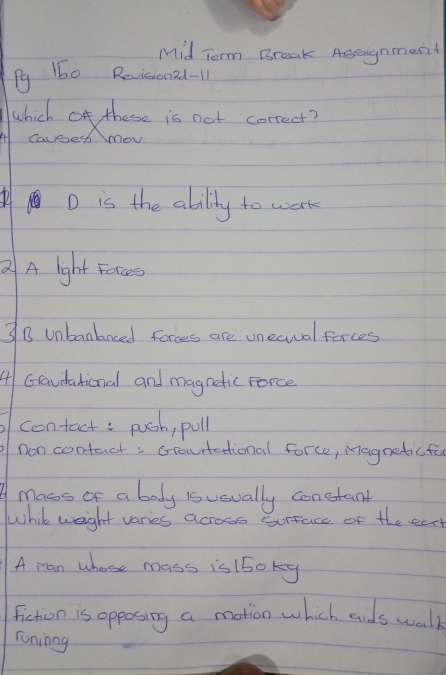 Mid Term Break Assignment
Pg 150 Revision 21-11
1 which of these is not correct?
A causes mov
1 D is the ability to work
2 A light Forces
3 B unbanlanced forces are unecual forces
4 Gravitational and magnetic Force
5 Contact : push, pull
non contact : Gravitational force, Magnetic fo
7 mass of a body is usually constant
while weight varies across surface of the eart
A man whose mass is 150kg
Fiction is opposing a motion which aids walk
runinng